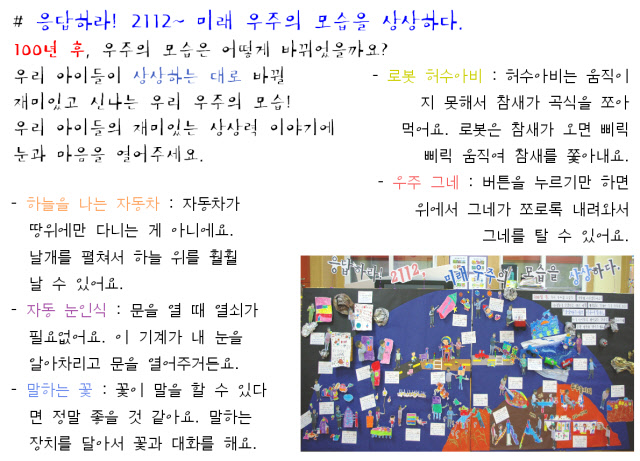 # 응답하라! 2112~ 미래 우주의 모습을 상상하다.
100년 후, 우주의 모습은 어떻게 바뀌었을까요?
우리 아이들이 상상하는 대로 바뀔
재미있고 신나는 우리 우주의 모습!
우리 아이들의 재미있는 상상력 이야기에
눈과 마음을 열어주세요.
- 하늘을 나는 자동차 : 자동차가
땅위에만 다니는 게 아니에요.
날개를 펼쳐서 하늘 위를 훨훨
날 수 있어요.
- 자동 눈인식 : 문을 열 때 열쇠가
필요없어요. 이 기계가 내 눈을
알아차리고 문을 열어주거든요.
- 말하는 꽃 : 꽃이 말을 할 수 있다
면 정말 좋을 것 같아요. 말하는
장치를 달아서 꽃과 대화를 해요.
- 로봇 허수아비 : 허수아비는 움직이
지 못해서 참새가 곡식을 쪼아
먹어요. 로봇은 참새가 오면 삐릭
삐릭 움직여 참새를 쫓아내요.
- 우주 그네 : 버튼을 누르기만 하면
위에서 그네가 쪼로록 내려와서
그네를 탈 수 있어요.
응답하라! 2112, 미래 우주의 모습을 상상하다.